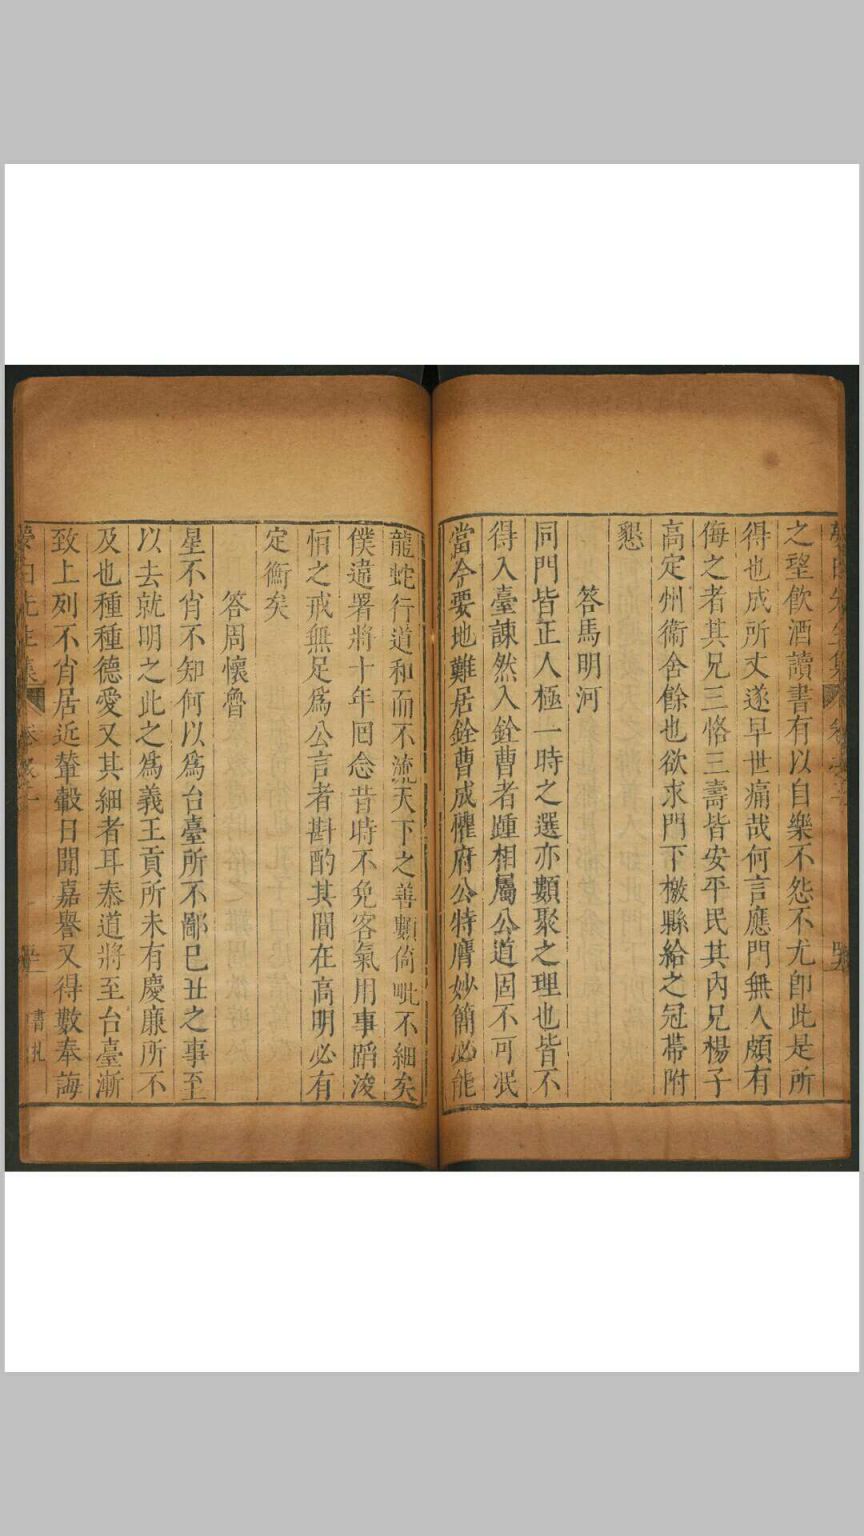 之望飲酒讀書有以自樂不怨不尤卽此是所
得也成所丈遂早世痛哉何言應門無人頗有
侮之者其兄三恪三壽皆安平民其內兄楊子
高定州衞舍餘也欲求門下檄縣給之冠帶附
懇
答馬明河
同門皆正人極一時之選亦類聚之理也皆不
得入臺諫然入銓曹者踵相屬公道固不可泯
當今要地難居銓曹成懼府公特膺妙簡必能
龍蛇行道和而不流天下之善類倚毗不細矣
僕違署將十年回念昔時不免客氣用事蹈浚
恒之戒無足爲公言者斟酌其間在高明必有
定衡矣
答周懷魯
星不肖不知何以爲台臺所不鄙巳丑之事至
以去就明之此之爲義王貢所未有慶廉所不
及也種種德愛又其細者耳忝道將至台臺漸
致上列不肖居近輦轂日聞嘉譽又得數奉誨
書札